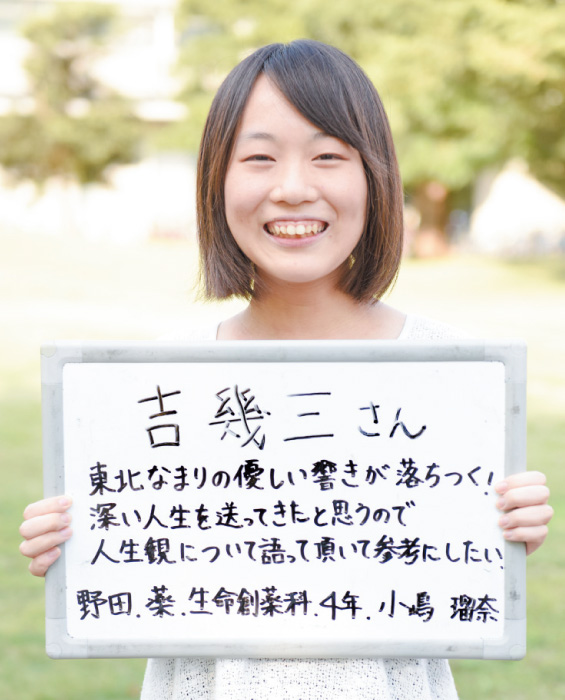 吉幾三さん
東北なまりの優しい響きが落ちつく!
深い人生を送ってきたと思うので
人生観について語って頂いて参考にしたい.
野田.薬.生命創薬科.4年.小嶋 瑠奈